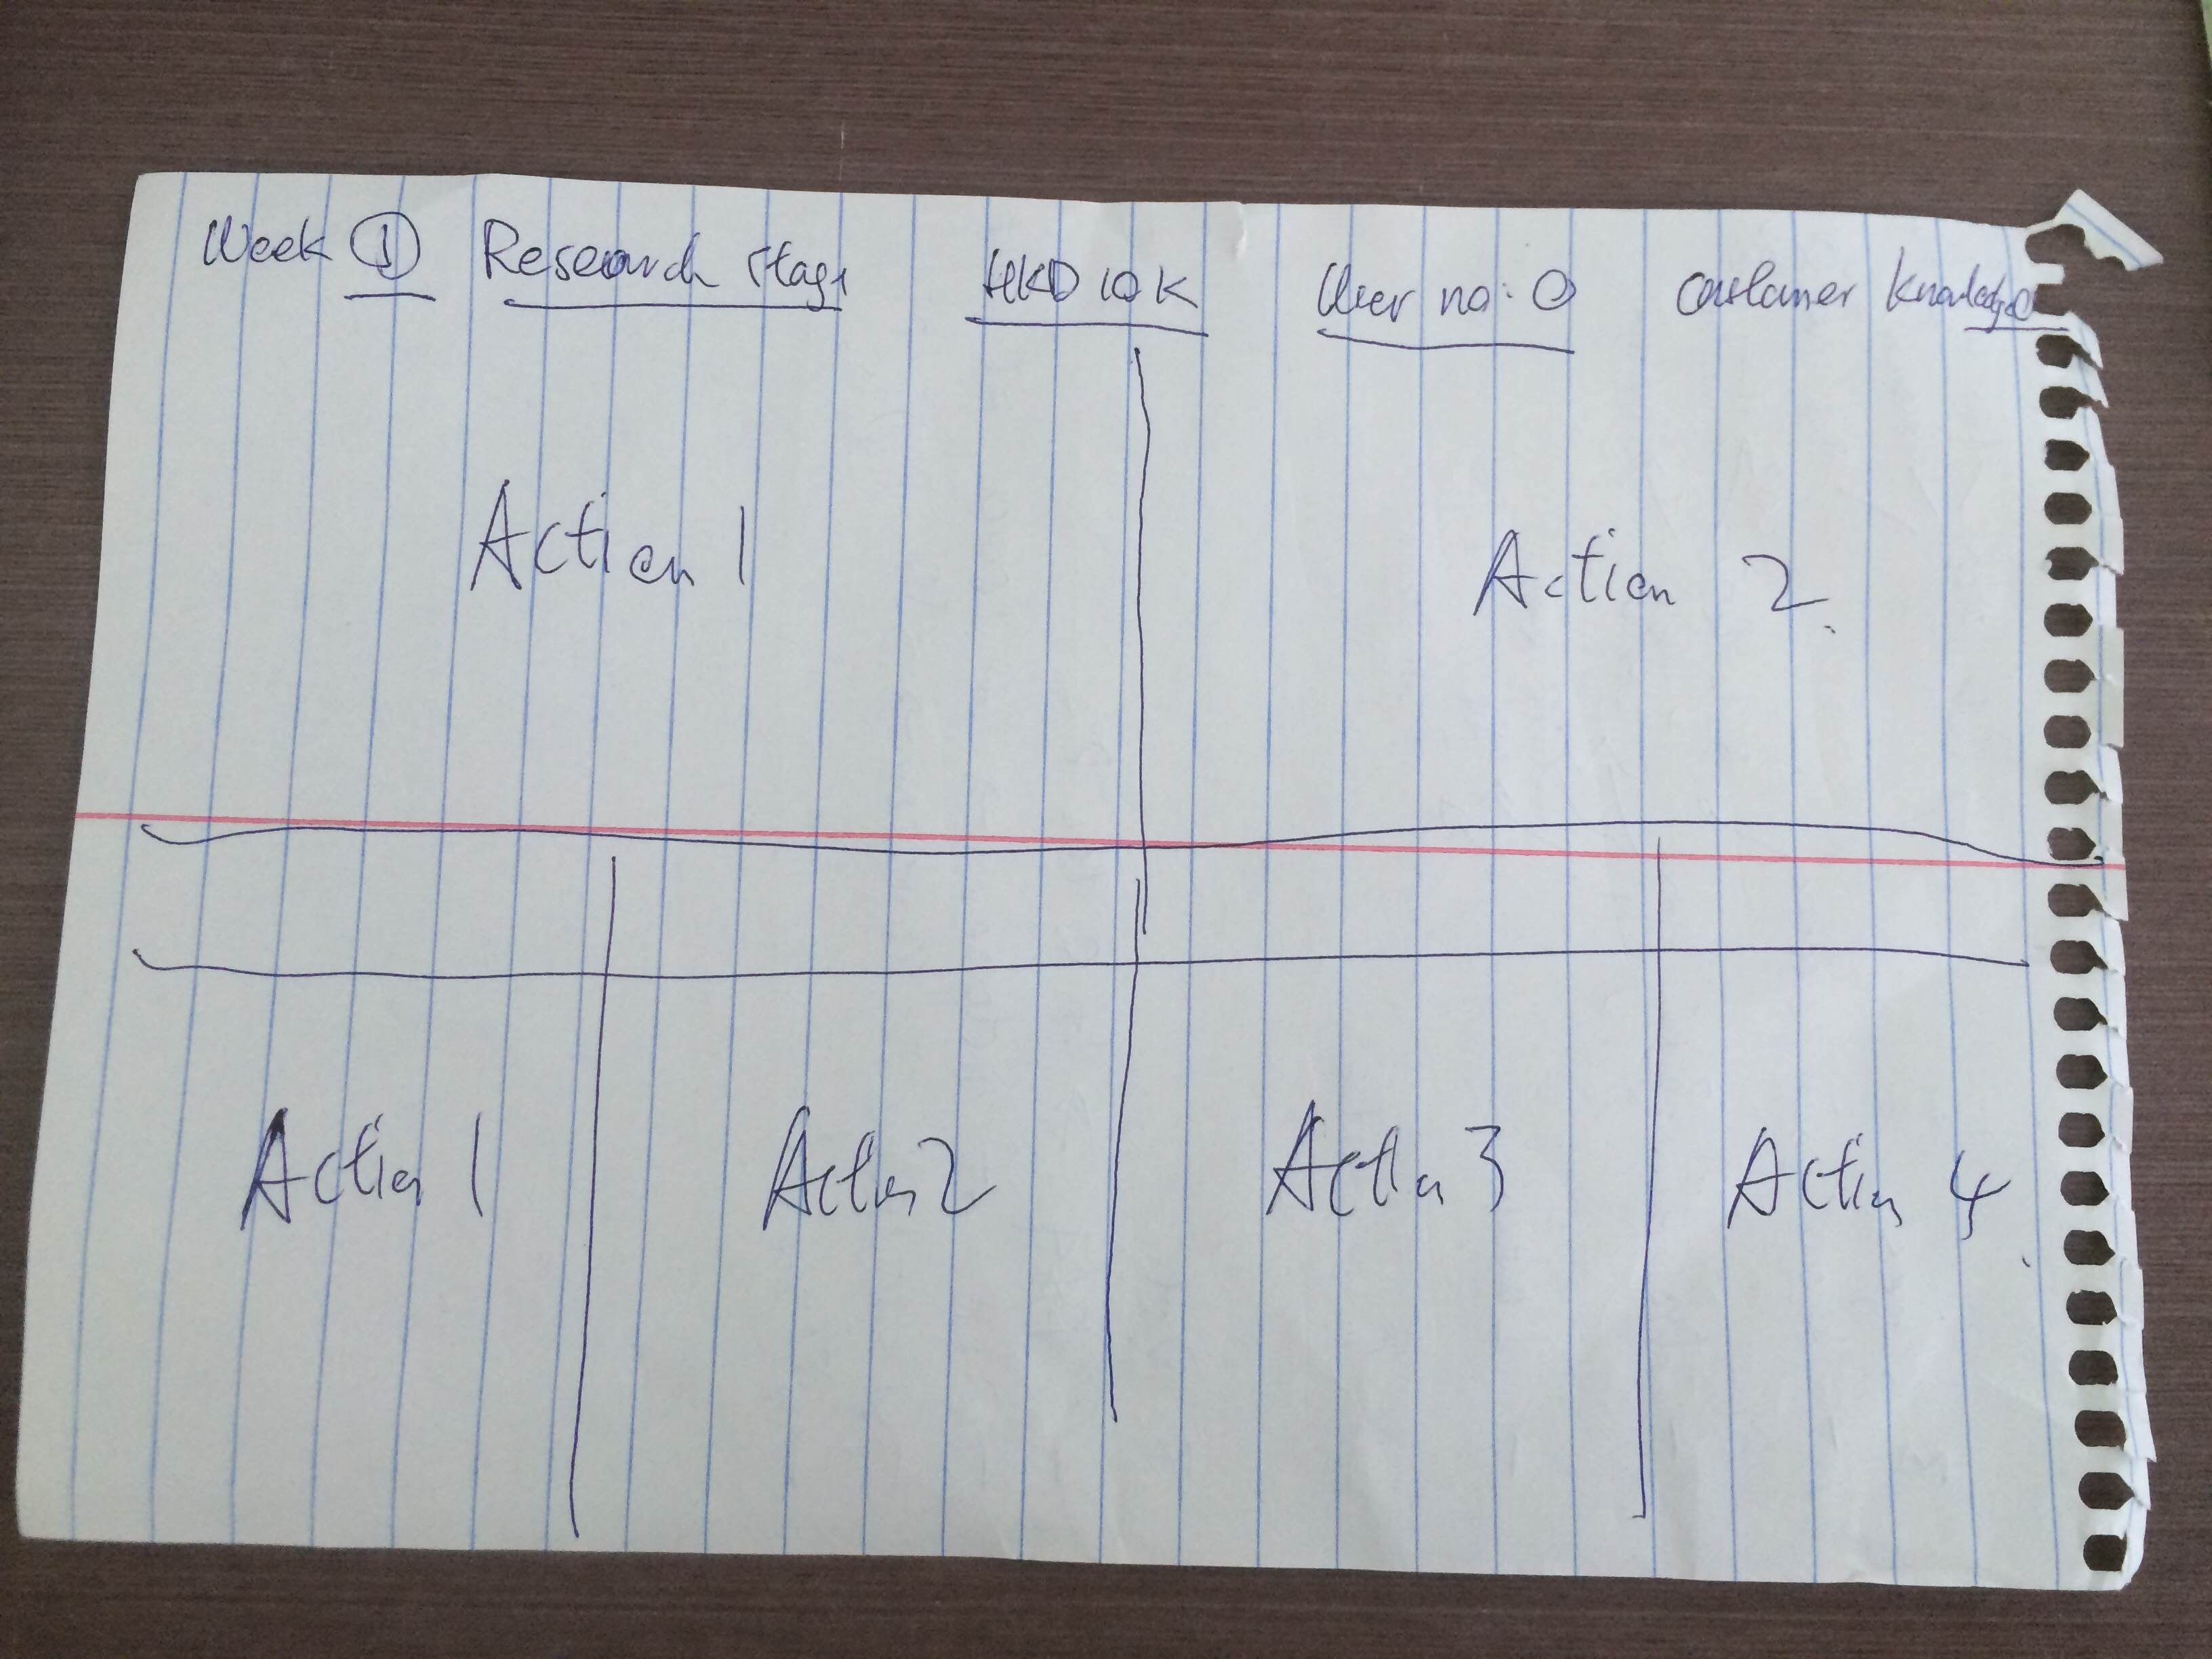 Week ① Research stage HKD 10K User no: 0 Customer knowledge
Action 1 Action 2
Action 1 Action 2 Action 3 Action 4